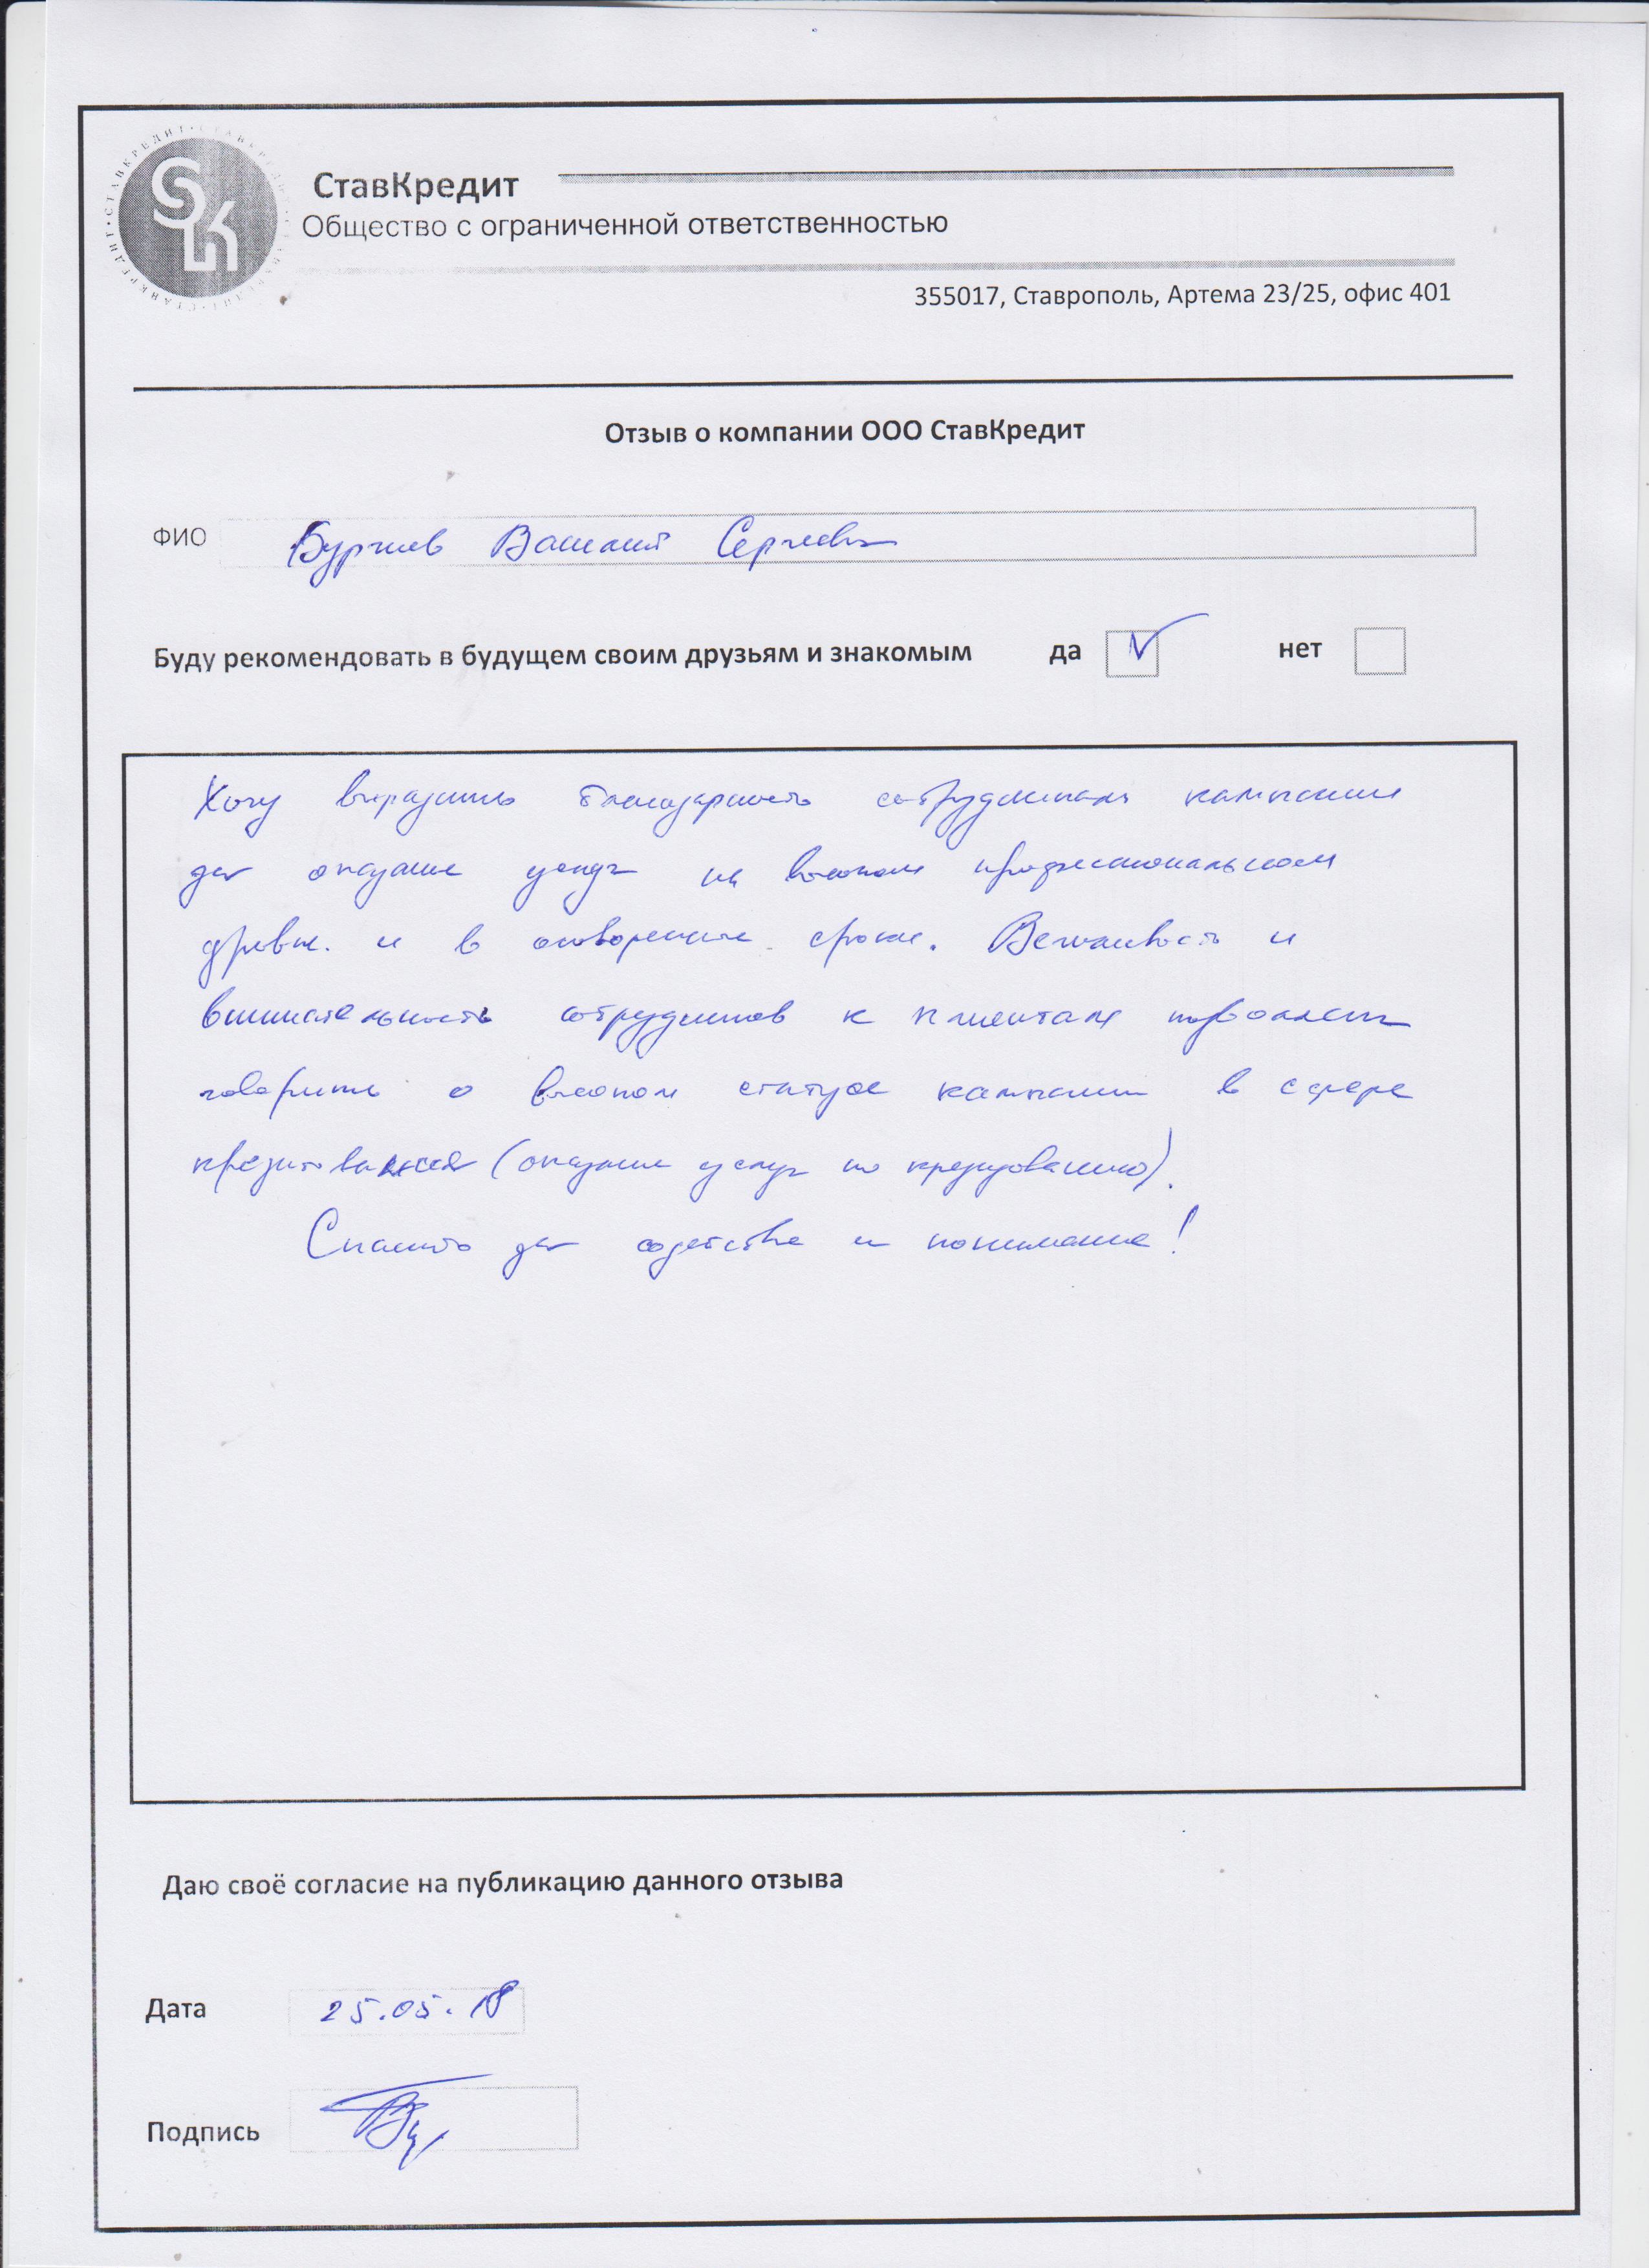 СтавКредит
Общество с ограниченной ответственностью
355017, Ставрополь, Артема 23/25, офис 401
Отзыв о компании ООО СтавКредит
ФИО Василий Сергеевич
Буду рекомендовать в будущем своим друзьям и знакомым да нет
Хочу выразить благодарность сотрудникам кампании
за оказание услуг на высоком профессиональном
уровне и в оговоренные сроки. Вежливость и
внимательность сотрудников к клиентам позволяет
говорить о высоком статусе кампании в сфере
кредитования (оказание услуг по кредитованию).
Спасибо за содействие и понимание!
Даю своё согласие на публикацию данного отзыва
Дата 25.05.18
Подпись